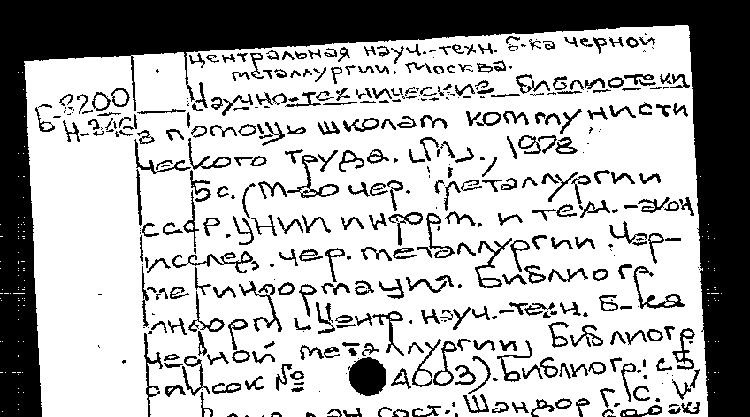 Центральная науч.-техн. б-ка черной
металлургии. Москва.
Б-8200
Н-346
Научно-технические библиотеки
в помощь школам коммунисти
ческого труда. [М]., 1978
5с. (М-во чер. металлургии
СССР. ЦНИИ информ. и техн.-экон
исслед. чер. металлургии. Чер-
метинформация. Библиогр.
информ Центр. науч.-техн. б-ка
черной металлургии; Библиогр
список № А003). Библиогр.: с5
сост.: Шандор Г.С.